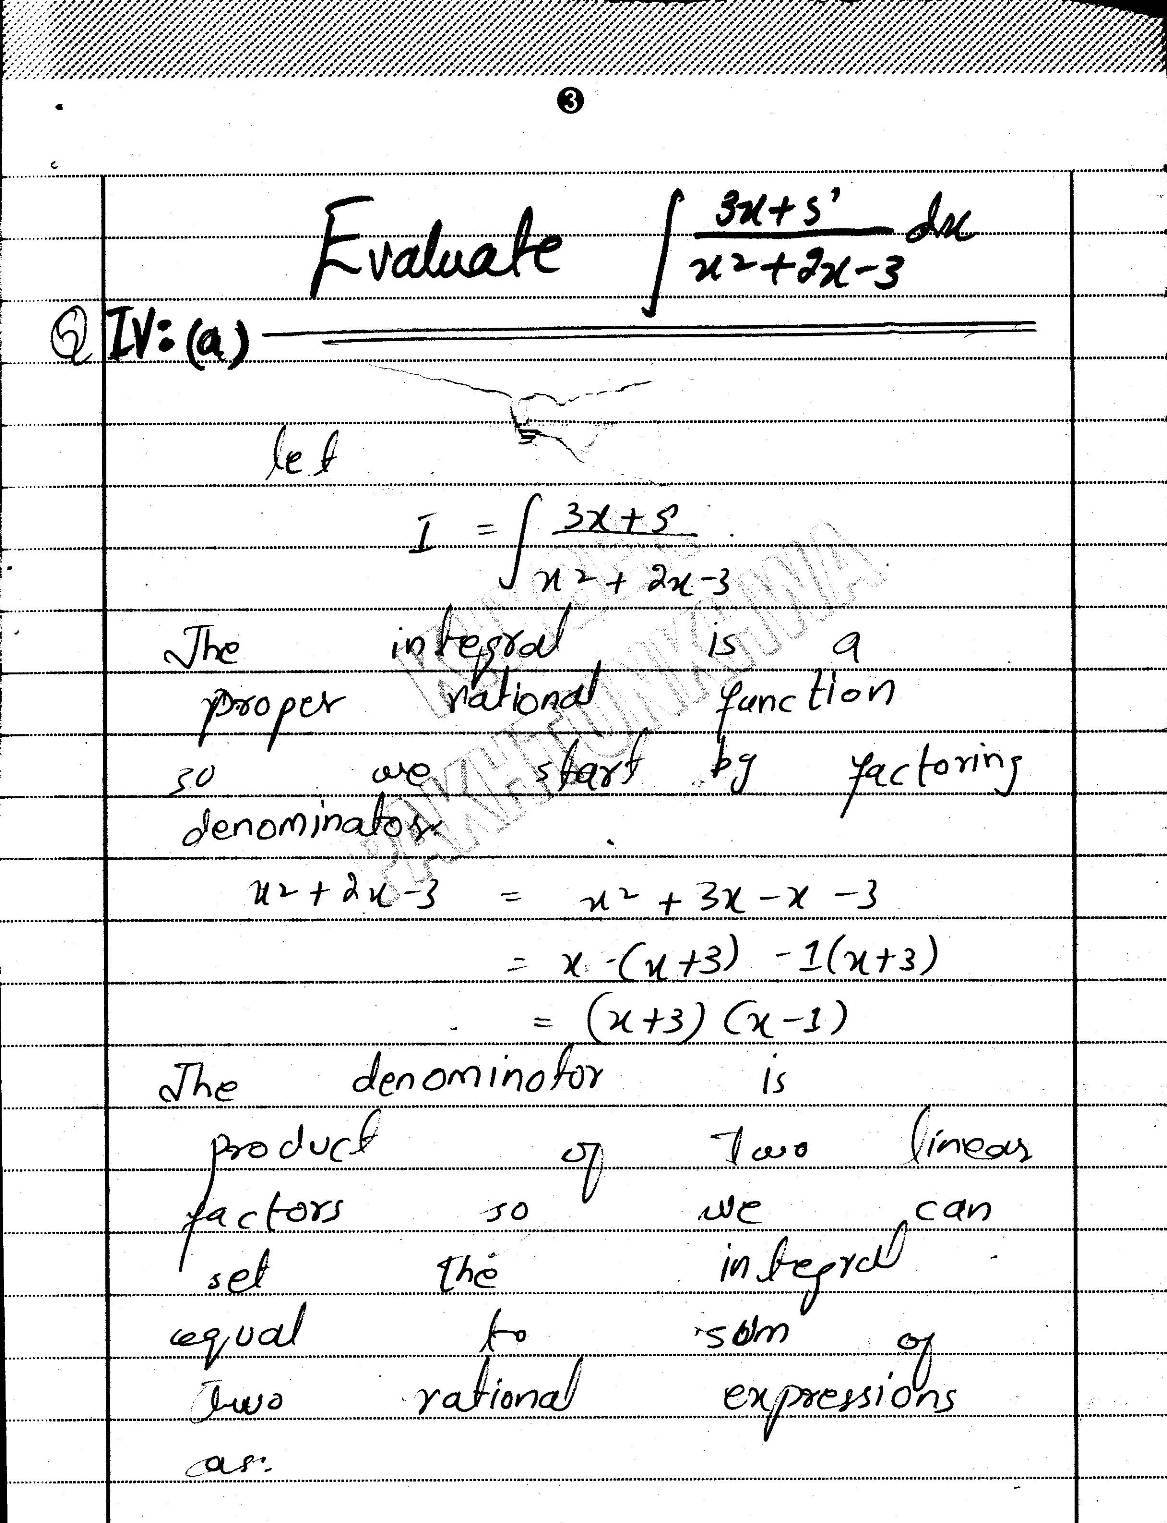 3
Evaluate ∫ (3x+5)/(x²+2x-3) dx
Q IV: (a)
let
I = ∫ (3x+5)/(x²+2x-3)
The integral is a
proper rational function
so we start by factoring
denominator.
x²+2x-3 = x²+3x-x-3
= x(x+3) -1(x+3)
= (x+3)(x-1)
The denominator is
product of Two linear
factors so we can
set the integral
equal to sum of
Two rational expressions
as:
KHYBER
PAKHTUNKHWA